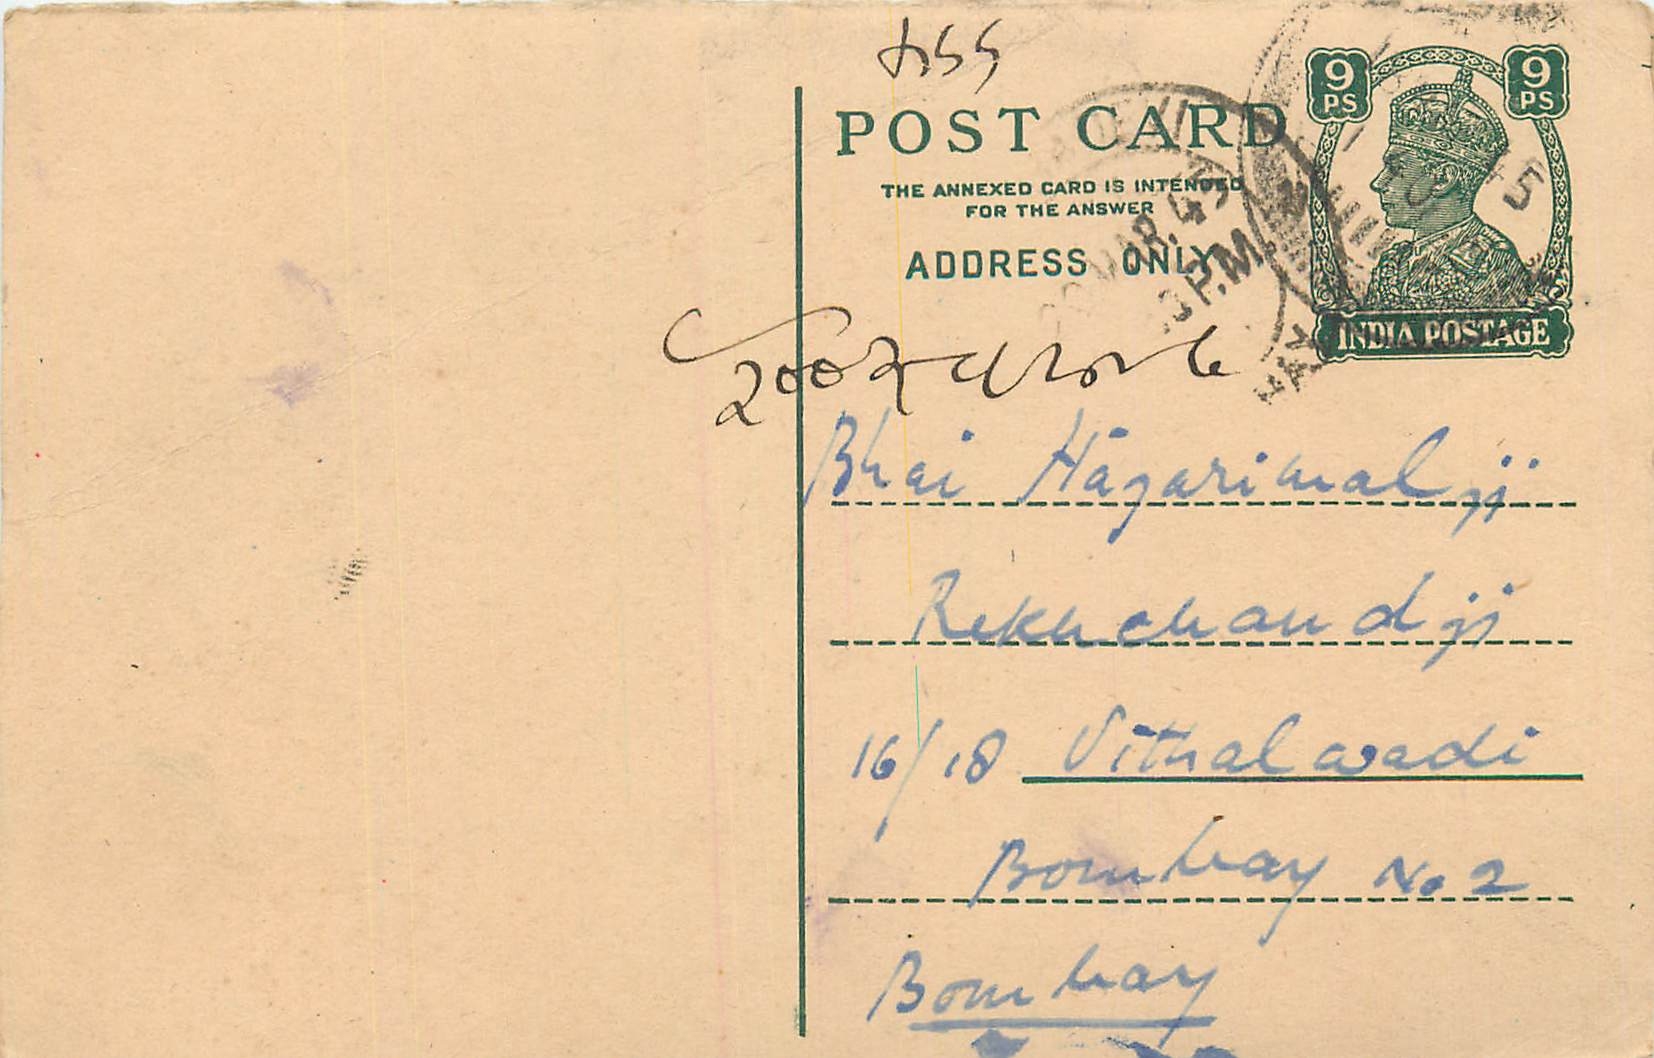 9 PS
9 PS
POST CARD
THE ANNEXED CARD IS INTENDED
FOR THE ANSWER
ADDRESS ONLY
MAR. 45
P.M.
45
INDIA POSTAGE
Bhai Hazarimal ji
Rekhchand ji
16/18 Vithalwadi
Bombay No 2
Bombay